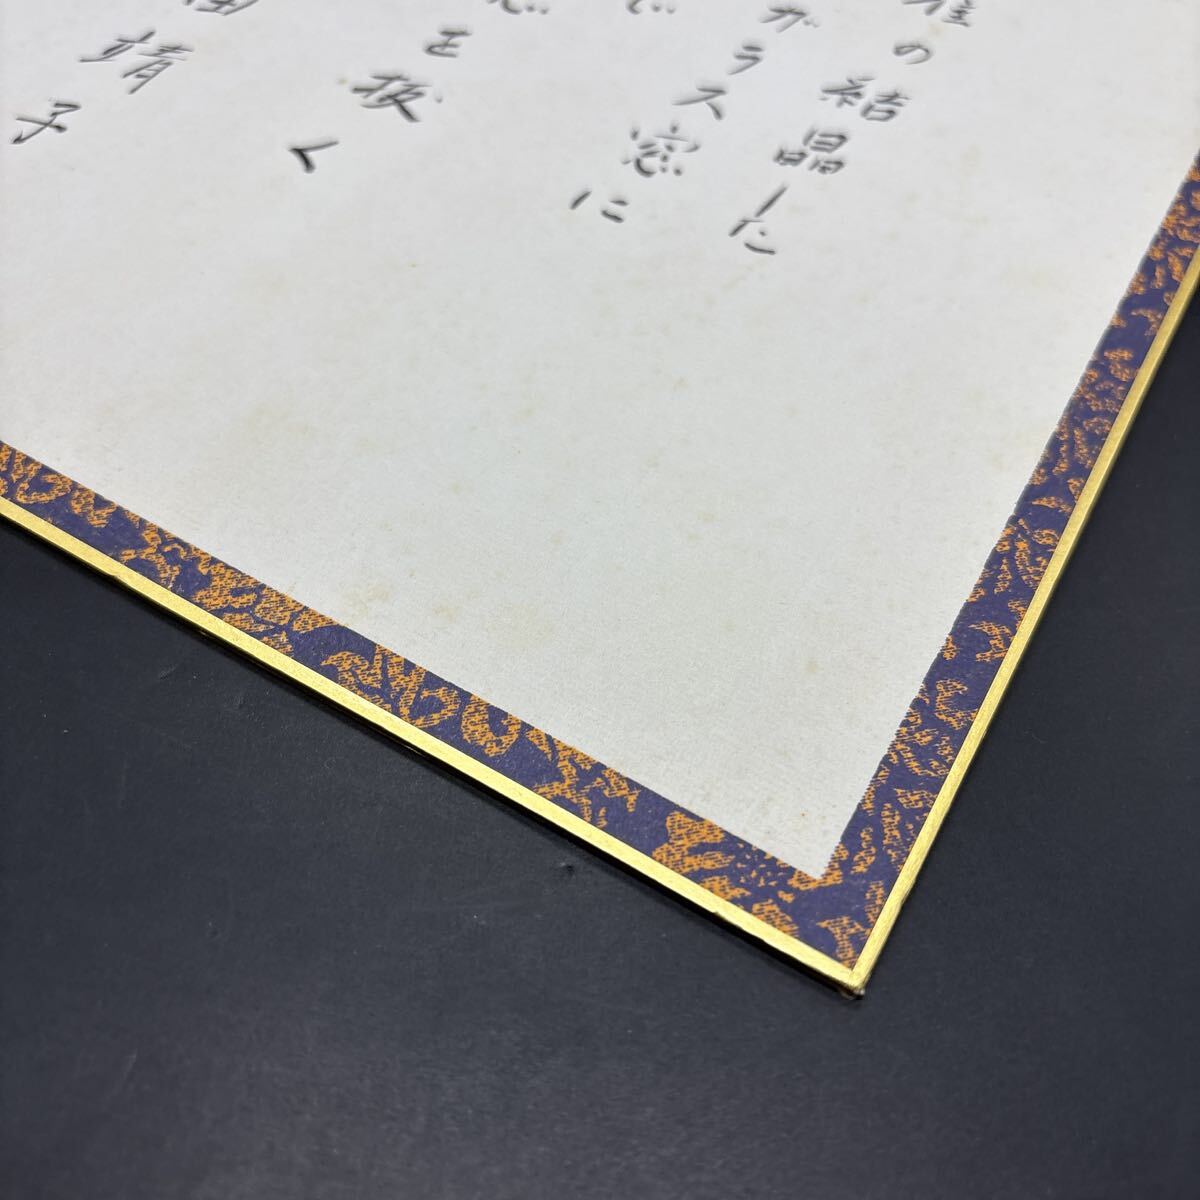 の結晶した
ガラス窓に
で
を抜く
靖子